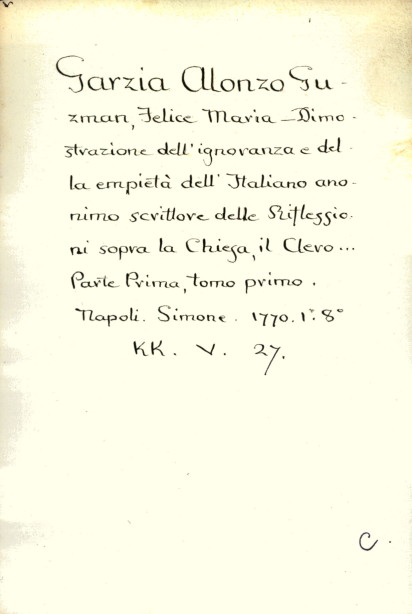 Garzia Alonzo Gu-
zman, Felice Maria - Dimo-
strazione dell'ignoranza e del-
la empietà dell'Italiano ano-
nimo scrittore delle Riflessio-
ni sopra la Chiesa, il Clero...
Parte Prima, tomo primo.
Napoli. Simone. 1770. 1°. 8°
KK. V. 27.
C.